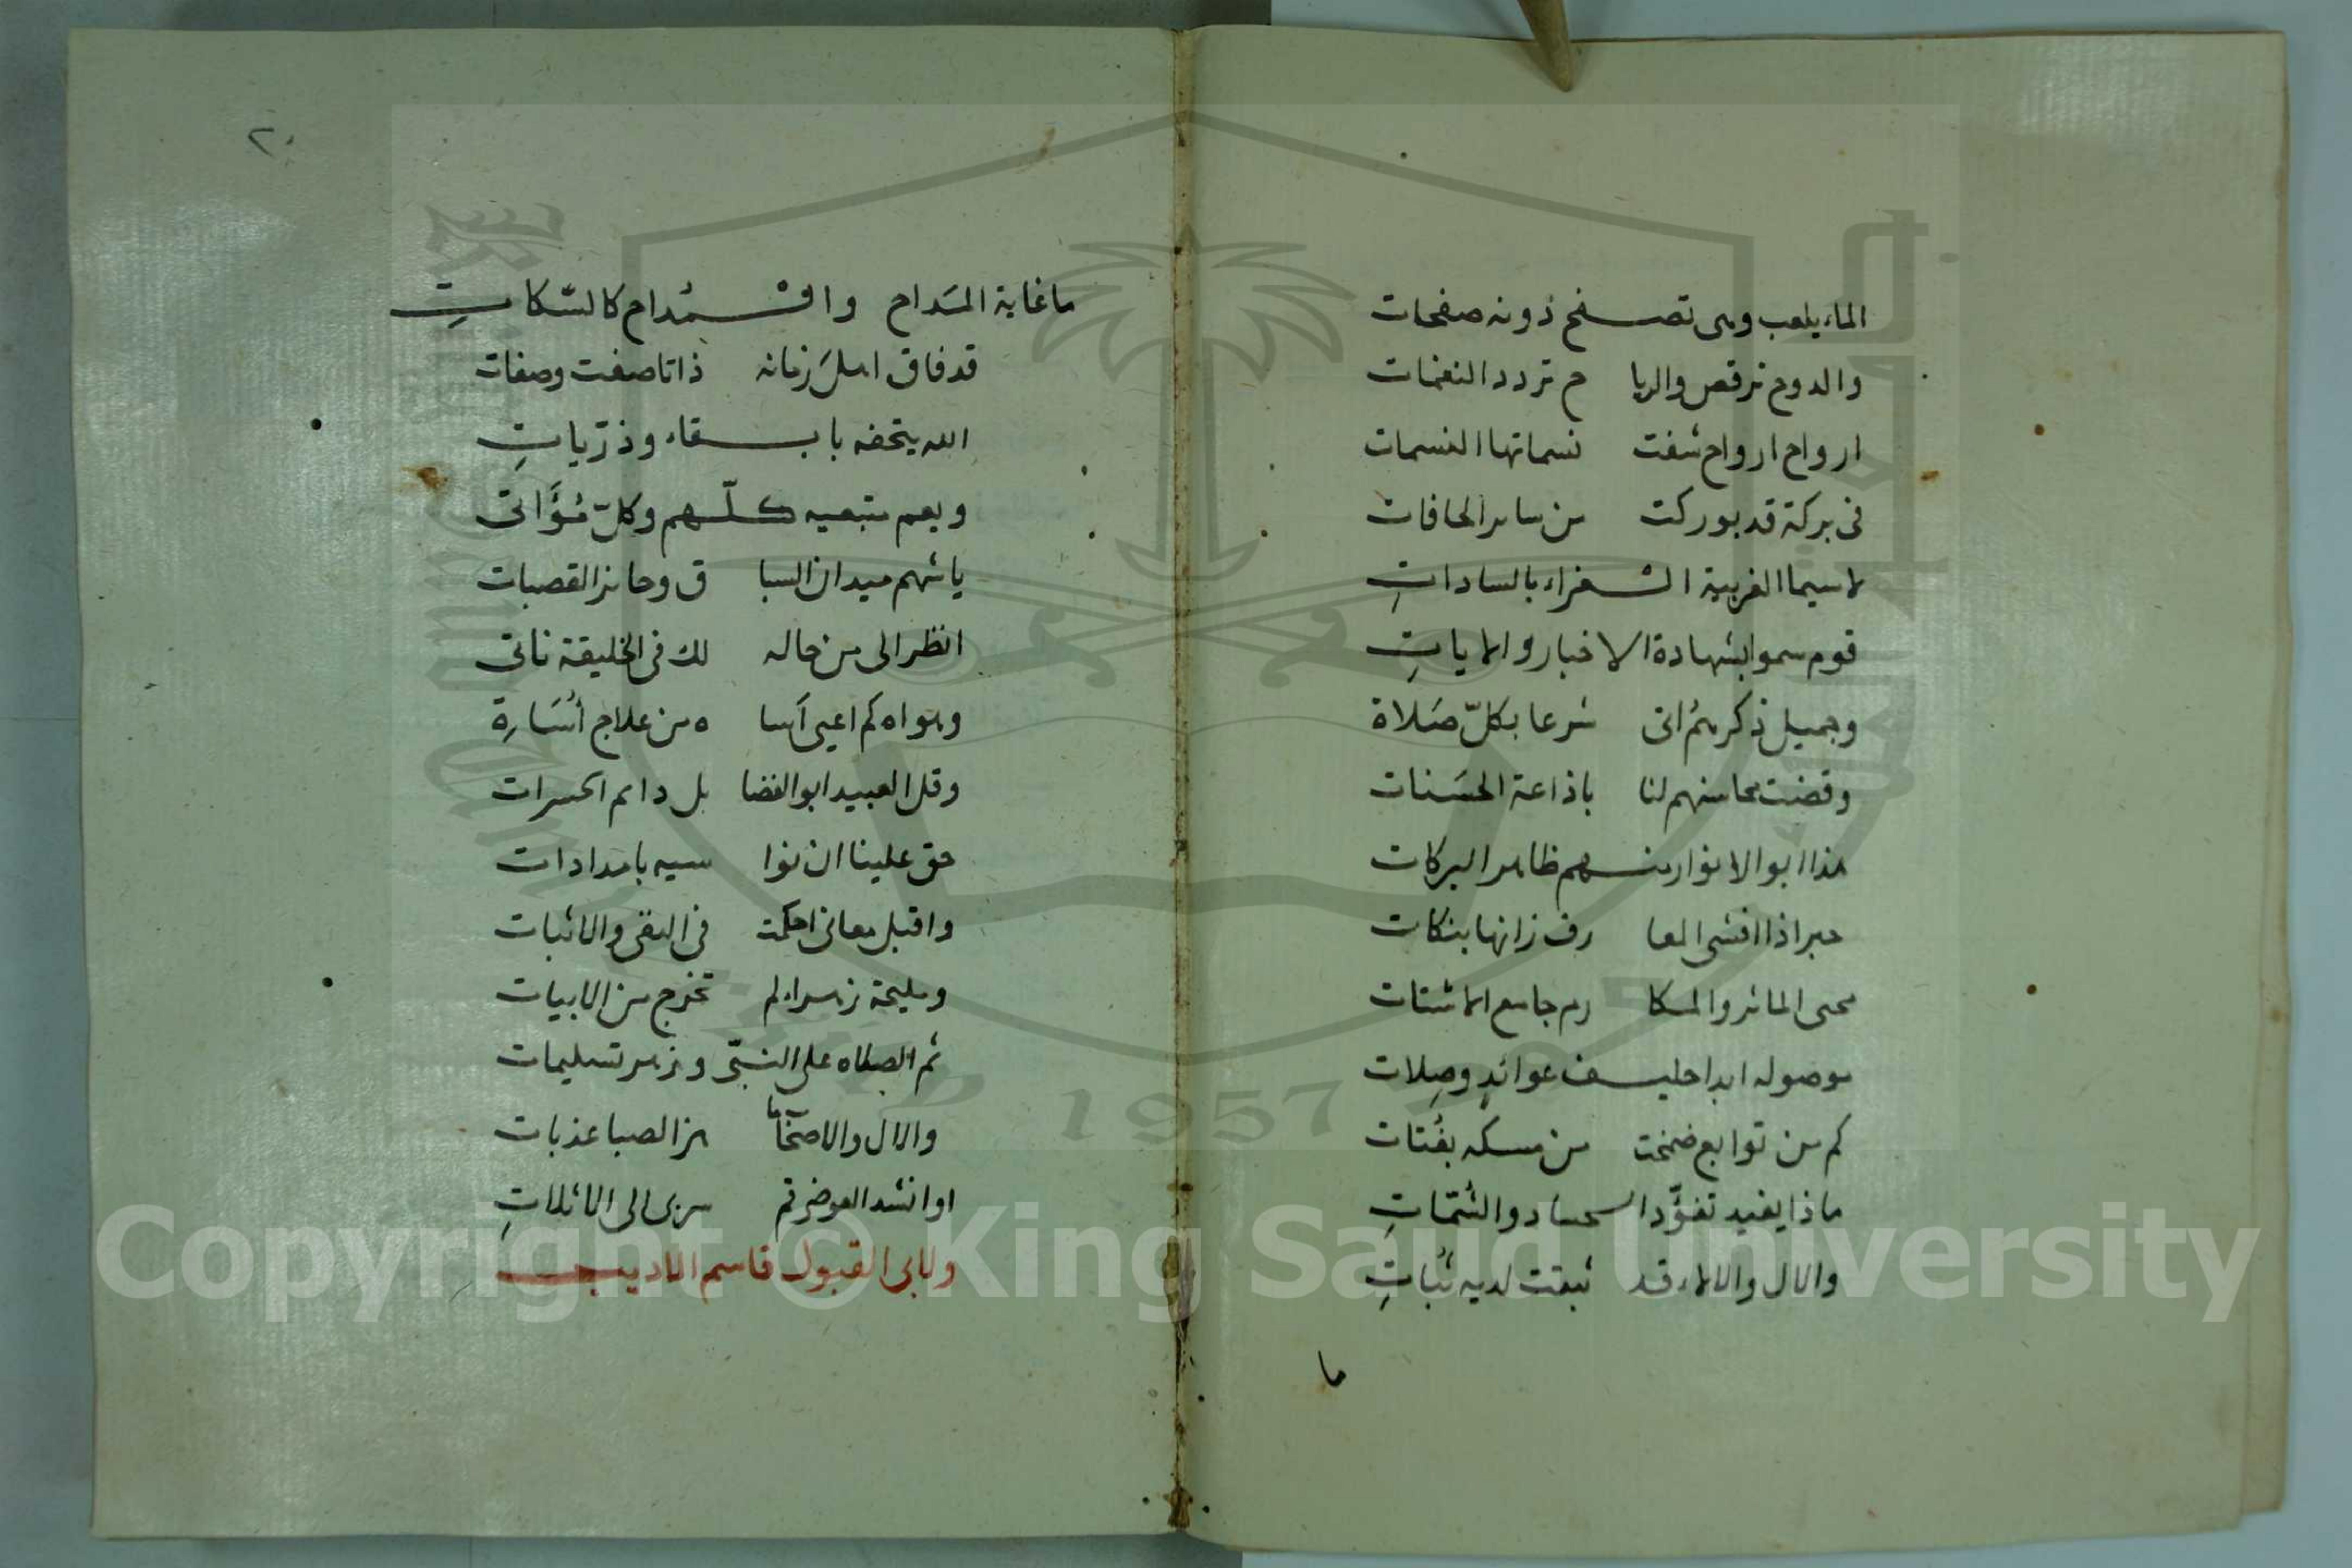 الماء يلعب وهى تصفح دونه صفحات
والدوح ترقص والريا ح تردد النغمات
ارواح ارواح شفت نسماتها النسمات
فى بركة قد بوركت من ساير الحافات
لاسيما الغربية الشغراء بالسادات
قوم سموا بشهادة الاخبار والايات
وجميل ذكرهم اتى شرعا بكلّ صَلاة
وقضت محاسنهم لنا باذاعة الحسَنات
هذا ابو الانوار منهم ظاهر البركات
حبر اذا افشى المعا رف زانها بنكات
محيى الماثر والمكا رم جامع الاشتات
موصوله ابدا حليف عوائدٍ وصِلات
كم من توابع ضمخت من مسكه بفُتات
ماذا يفيد تفوّد الحساد والشمّاتِ
والال والالاء قد ثبتت لديه ثباتِ
ما
٢٠
ما غاية المَداح وا قْمداح كالسّكاتِ
قد فاق اهلَ زمانه ذاتا صفت وصفات
الله يتحفه بابقاء وذرّياتِ
ويعم متبعيه كلّهم وكلّ مُؤَاتى
يا شهم ميدان السبا ق وحائز القصبات
انظر الى من خاله لك فى الخليقة ناتى
وهواه كم اعيى اسا ه من علاج أسَارة
وقل العبيد ابو الفضا يل دايم الحسرات
حق علينا ان نوا سيه بامدادات
واقبل معانى احكمت فى النفى والاثبات
ومليحة زهراء لم تخرج من الابيات
ثم الصلاه على النبىّ وزهر تسليمات
والال والاصحاب ما هز الصبا عذبات
او انشد العوضى قم سربى الى الاثلاتِ
ولابى القبول قاسم الاديب
Copyright © King Saud University
1957